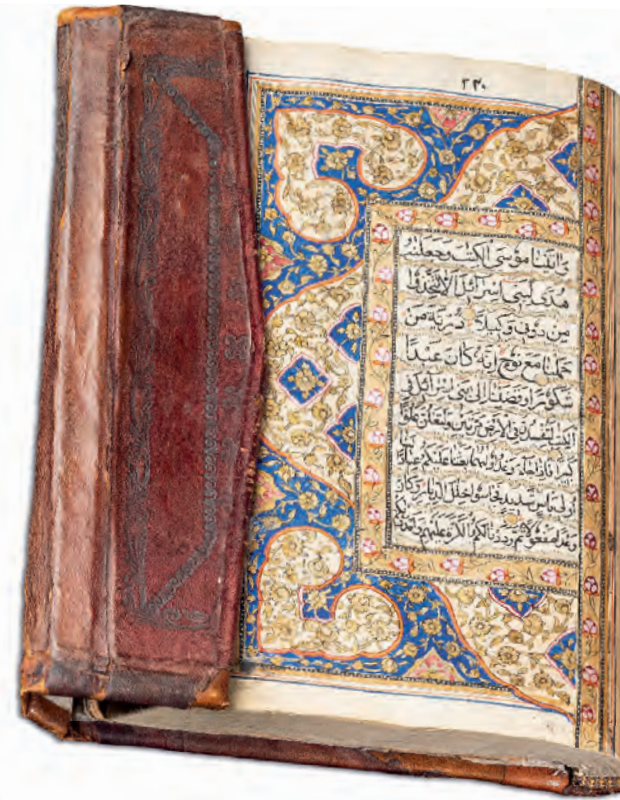 ٢٣٠
وَاتَيْنَا مُوسَى الْكِتٰبَ وَجَعَلْنٰهُ
هُدًى لِبَنِى اِسْرَائِلَ اَلَّا تَتَّخِذُوا
مِنْ دُونِى وَكِيلًا ذُرِّيَّةَ مَنْ
حَمَلْنَا مَعَ نُوحٍ اِنَّهُ كَانَ عَبْدًا
شَكُورًا وَقَضَيْنَا اِلٰى بَنِى اِسْرَائِلَ فِى
الْكِتٰبِ لَتُفْسِدُنَّ فِى الْاَرْضِ مَرَّتَيْنِ وَلَتَعْلُنَّ عُلُوًّا
كَبِيرًا فَاِذَا جَاءَ وَعْدُ اُولٰهُمَا بَعَثْنَا عَلَيْكُمْ عِبَادًا لَنَا
اُولِى بَاْسٍ شَدِيدٍ فَجَاسُوا خِلٰلَ الدِّيَارِ وَكَانَ
وَعْدًا مَفْعُولًا ثُمَّ رَدَدْنَا لَكُمُ الْكَرَّةَ عَلَيْهِمْ وَاَمْدَدْنٰكُمْ